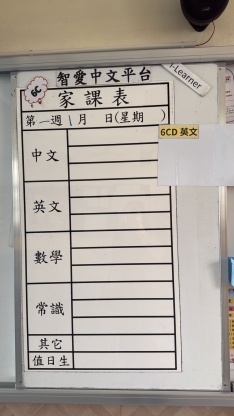 智愛中文平台
i-Learner
6C
家課表
第一週 1月 日(星期 )
6CD 英文
中文
英文
數學
常識
其它
值日生